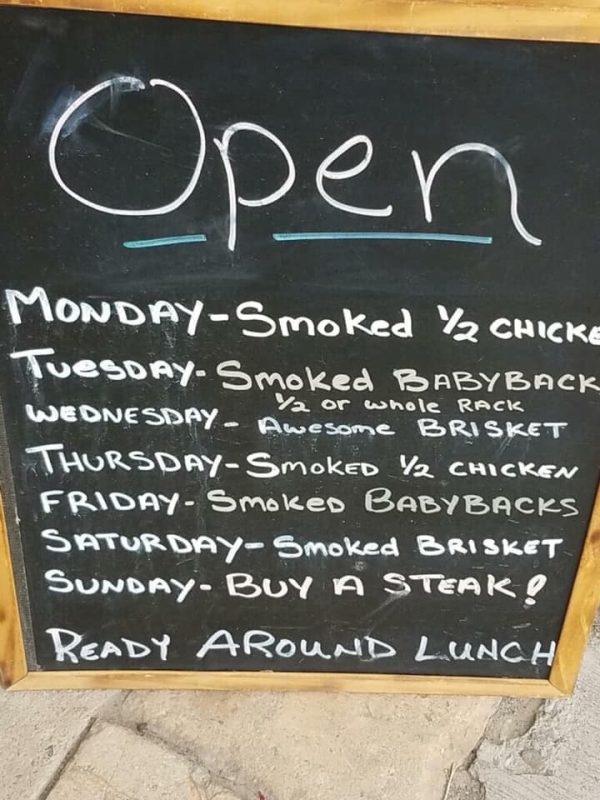 Open
MONDAY-Smoked ½ CHICKE
TuesDAY-Smoked BABYBACK
½ or whole RACK
WEDNESDAY - Awesome BRISKET
THURSDAY-SmokED ½ CHICKEN
FRIDAY-SmokeD BABYBACKS
SATURDAY-Smoked BRISKET
SUNDAY-BUY A STEAK!
READY AROUND LUNCH